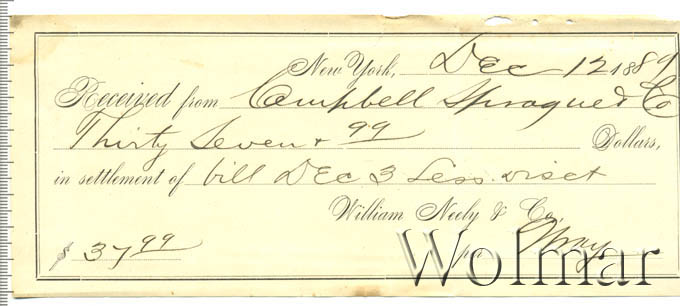 New York, Dec 12 1889
Received from Campbell Sprague & Co
Thirty Seven & 99 Dollars,
in settlement of bill Dec 3 Less disct
William Neely & Co.
$ 37 99
Wolmar